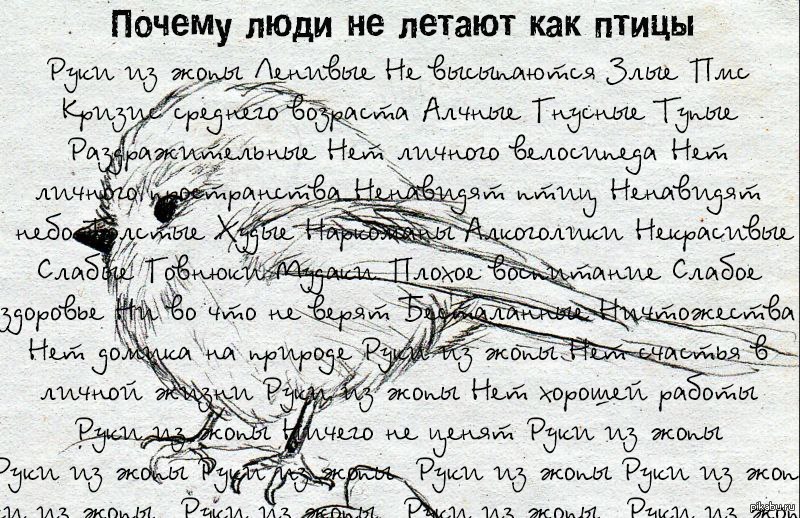 Почему люди не летают как птицы
Руки из жопы Ленивые Не высыпаются Злые Пмс
Кризис среднего возраста Алчные Гнусные Тупые
Раздражительные Нет личного велосипеда Нет
личного пространства Ненавидят птиц Ненавидят
небо Толстые Худые Наркоманы Алкоголики Некрасивые
Слабые Говнюки Мудаки Плохое воспитание Слабое
здоровье Ни во что не верят Бесталанные Ничтожества
Нет домика на природе Руки из жопы Нет счастья в
личной жизни Руки из жопы Нет хорошей работы
Руки из жопы Ничего не ценят Руки из жопы
Руки из жопы Руки из жопы Руки из жопы Руки из жоп
ки из жопы Руки из жопы Руки из жопы Руки из жоп
pikabu.ru